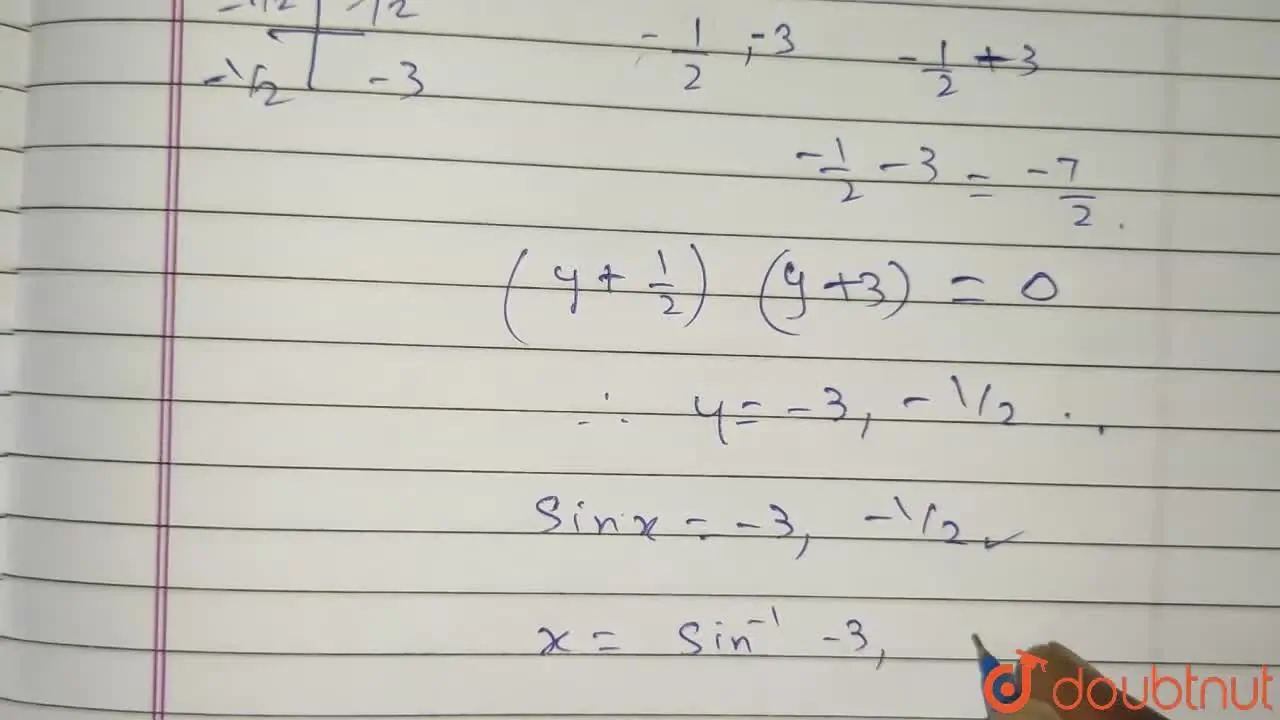 -1/2 -1/2
-1/2 -3
-1/2, -3 -1/2 + 3
-1/2 - 3 = -7/2.
(y + 1/2) (y + 3) = 0
∴ y = -3, -1/2.
Sin x = -3, -1/2 ✓
x = Sin⁻¹ -3,
doubtnut